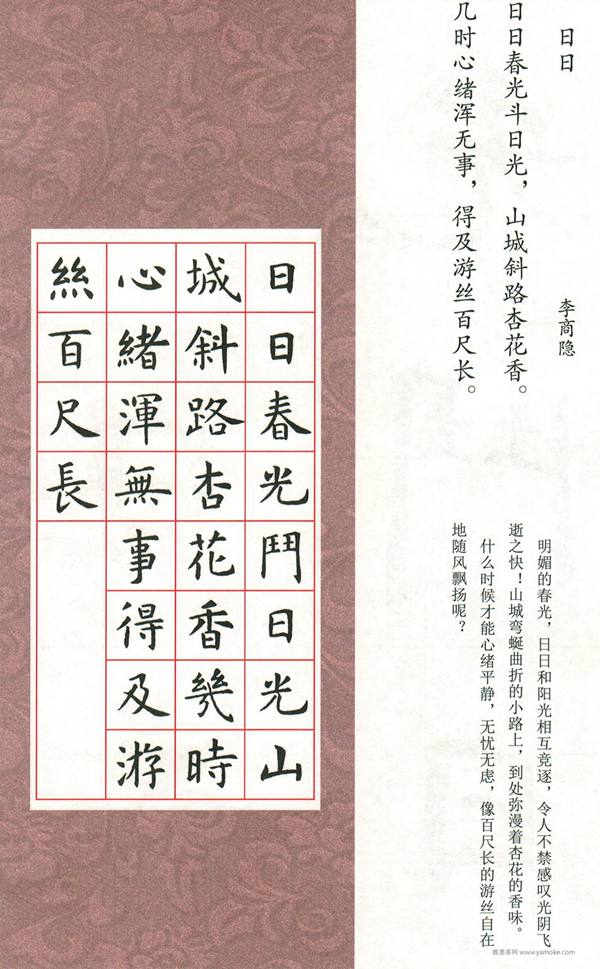 日日
李商隐
日日春光斗日光，山城斜路杏花香。
几时心绪浑无事，得及游丝百尺长。
明媚的春光，日日和阳光相互竞逐，令人不禁感叹光阴飞
逝之快！山城弯蜒曲折的小路上，到处弥漫着杏花的香味。
什么时候才能心绪平静，无忧无虑，像百尺长的游丝自在
地随风飘扬呢？
日日春光鬥日光山
城斜路杏花香幾時
心緒渾無事得及游
絲百尺長
雅墨客网 www.yamoke.com